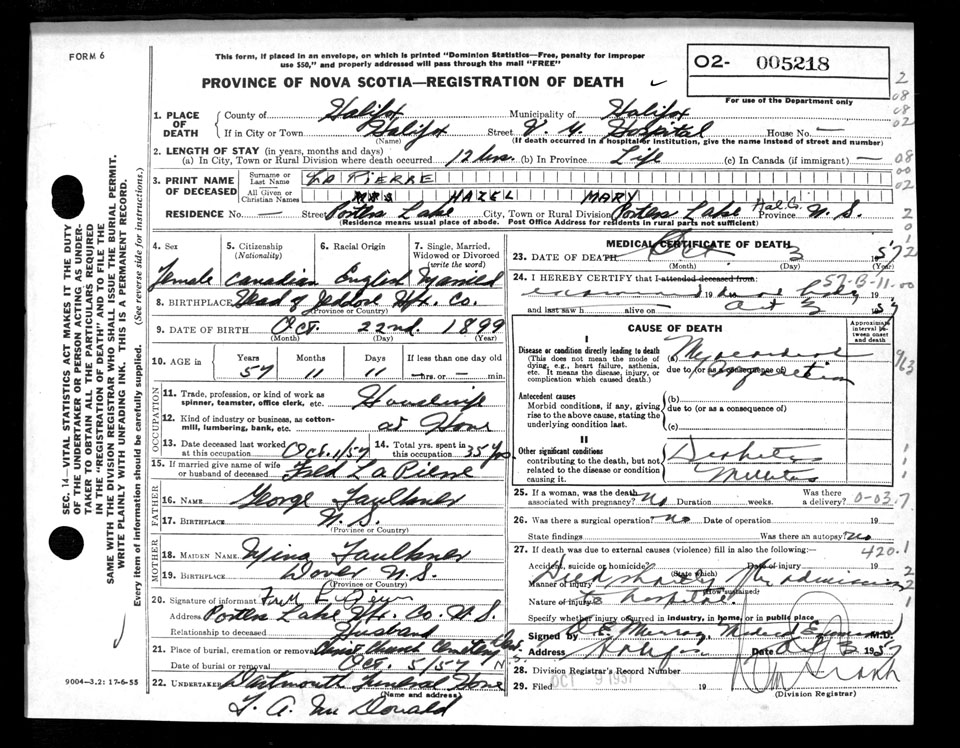 FORM 6
This form, if placed in an envelope, on which is printed "Dominion Statistics—Free, penalty for improper
use $50," and properly addressed will pass through the mail "FREE"
PROVINCE OF NOVA SCOTIA—REGISTRATION OF DEATH
O2- 005218
For use of the Department only
1. PLACE OF DEATH
County of Halifax Municipality of Halifax
If in City or Town Halifax Street V. G. Hospital House No. —
(Name) (If death occurred in a hospital or institution, give the name instead of street and number)
2. LENGTH OF STAY (in years, months and days)
(a) In City, Town or Rural Division where death occurred 12 hrs. (b) In Province Life (c) In Canada (if immigrant) —
3. PRINT NAME OF DECEASED
Surname or Last Name LA PIERRE
All Given or Christian Names MRS HAZEL MARY
RESIDENCE No. — Street Porters Lake City, Town or Rural Division Porters Lake Hal. Co. Province N. S.
(Residence means usual place of abode. Post Office Address for residents in rural parts not sufficient)
4. Sex Female
5. Citizenship (Nationality) Canadian
6. Racial Origin English
7. Single, Married, Widowed or Divorced (write the word) Married
8. BIRTHPLACE Head of Jeddore Hfx. Co.
(Province or Country)
9. DATE OF BIRTH Oct. 22nd. 1899
(Month) (Day) (Year)
10. AGE in Years 57 Months 11 Days 11 If less than one day old — hrs. or — min.
OCCUPATION
11. Trade, profession, or kind of work as spinner, teamster, office clerk, etc. Housewife
12. Kind of industry or business, as cotton-mill, lumbering, bank, etc. at Home
13. Date deceased last worked at this occupation Oct. 1/57
14. Total yrs. spent in this occupation 35 yrs.
15. If married give name of wife or husband of deceased Fred La Pierre
FATHER
16. NAME George Faulkner
17. BIRTHPLACE N. S.
(Province or Country)
MOTHER
18. MAIDEN NAME Faulkner
19. BIRTHPLACE Dover N.S.
(Province or Country)
20. Signature of informant
Address Porters Lake Hfx. Co. N. S.
Relationship to deceased Husband
21. Place of burial, cremation or removal Christ Church Cemetery
Date of burial or removal Oct. 5/57
22. UNDERTAKER Dartmouth Funeral Home
(Name and address)
T. A. McDonald
MEDICAL CERTIFICATE OF DEATH
23. DATE OF DEATH Oct 3 1957
(Month) (Day) (Year)
24. I HEREBY CERTIFY that I attended deceased from: 57-B-11-00
examined 19 body 19
and last saw h alive on Oct 3 1957
CAUSE OF DEATH
Approximate interval between onset and death
I
Disease or condition directly leading to death
(This does not mean the mode of dying, e.g., heart failure, asthenia, etc. It means the disease, injury, or complication which caused death.)
(a) Myocardial Infarction
due to (or as a consequence of)
Antecedent causes
Morbid conditions, if any, giving rise to the above cause, stating the underlying condition last.
(b)
due to (or as a consequence of)
(c)
II
Other significant conditions
contributing to the death, but not related to the disease or condition causing it.
Diabetes Mellitus
25. If a woman, was the death associated with pregnancy? No Duration weeks. Was there a delivery?
26. Was there a surgical operation? no Date of operation 19
State findings Was there an autopsy? No
27. If death was due to external causes (violence) fill in also the following:— 420.1
Accident, suicide or homicide? (State which) Date of injury 19
Manner of injury (How sustained)
Died shortly after admission
Nature of injury to hospital
Specify whether injury occurred in industry, in home, or in public place
Signed by E. Murray, Medical Examiner M.D.
Address Halifax Date Oct 3 1957
28. Division Registrar's Record Number
29. Filed OCT 9 1957 19
(Division Registrar)
SEC. 14—VITAL STATISTICS ACT MAKES IT THE DUTY
OF THE UNDERTAKER OR PERSON ACTING AS UNDER-
TAKER TO OBTAIN ALL THE PARTICULARS REQUIRED
IN THE "REGISTRATION OF DEATH" AND TO FILE THE
SAME WITH THE DIVISION REGISTRAR WHO SHALL ISSUE THE BURIAL PERMIT.
WRITE PLAINLY WITH UNFADING INK. THIS IS A PERMANENT RECORD.
Every item of information should be carefully supplied. (See reverse side for instructions.)
9004-3.2: 17-6-55